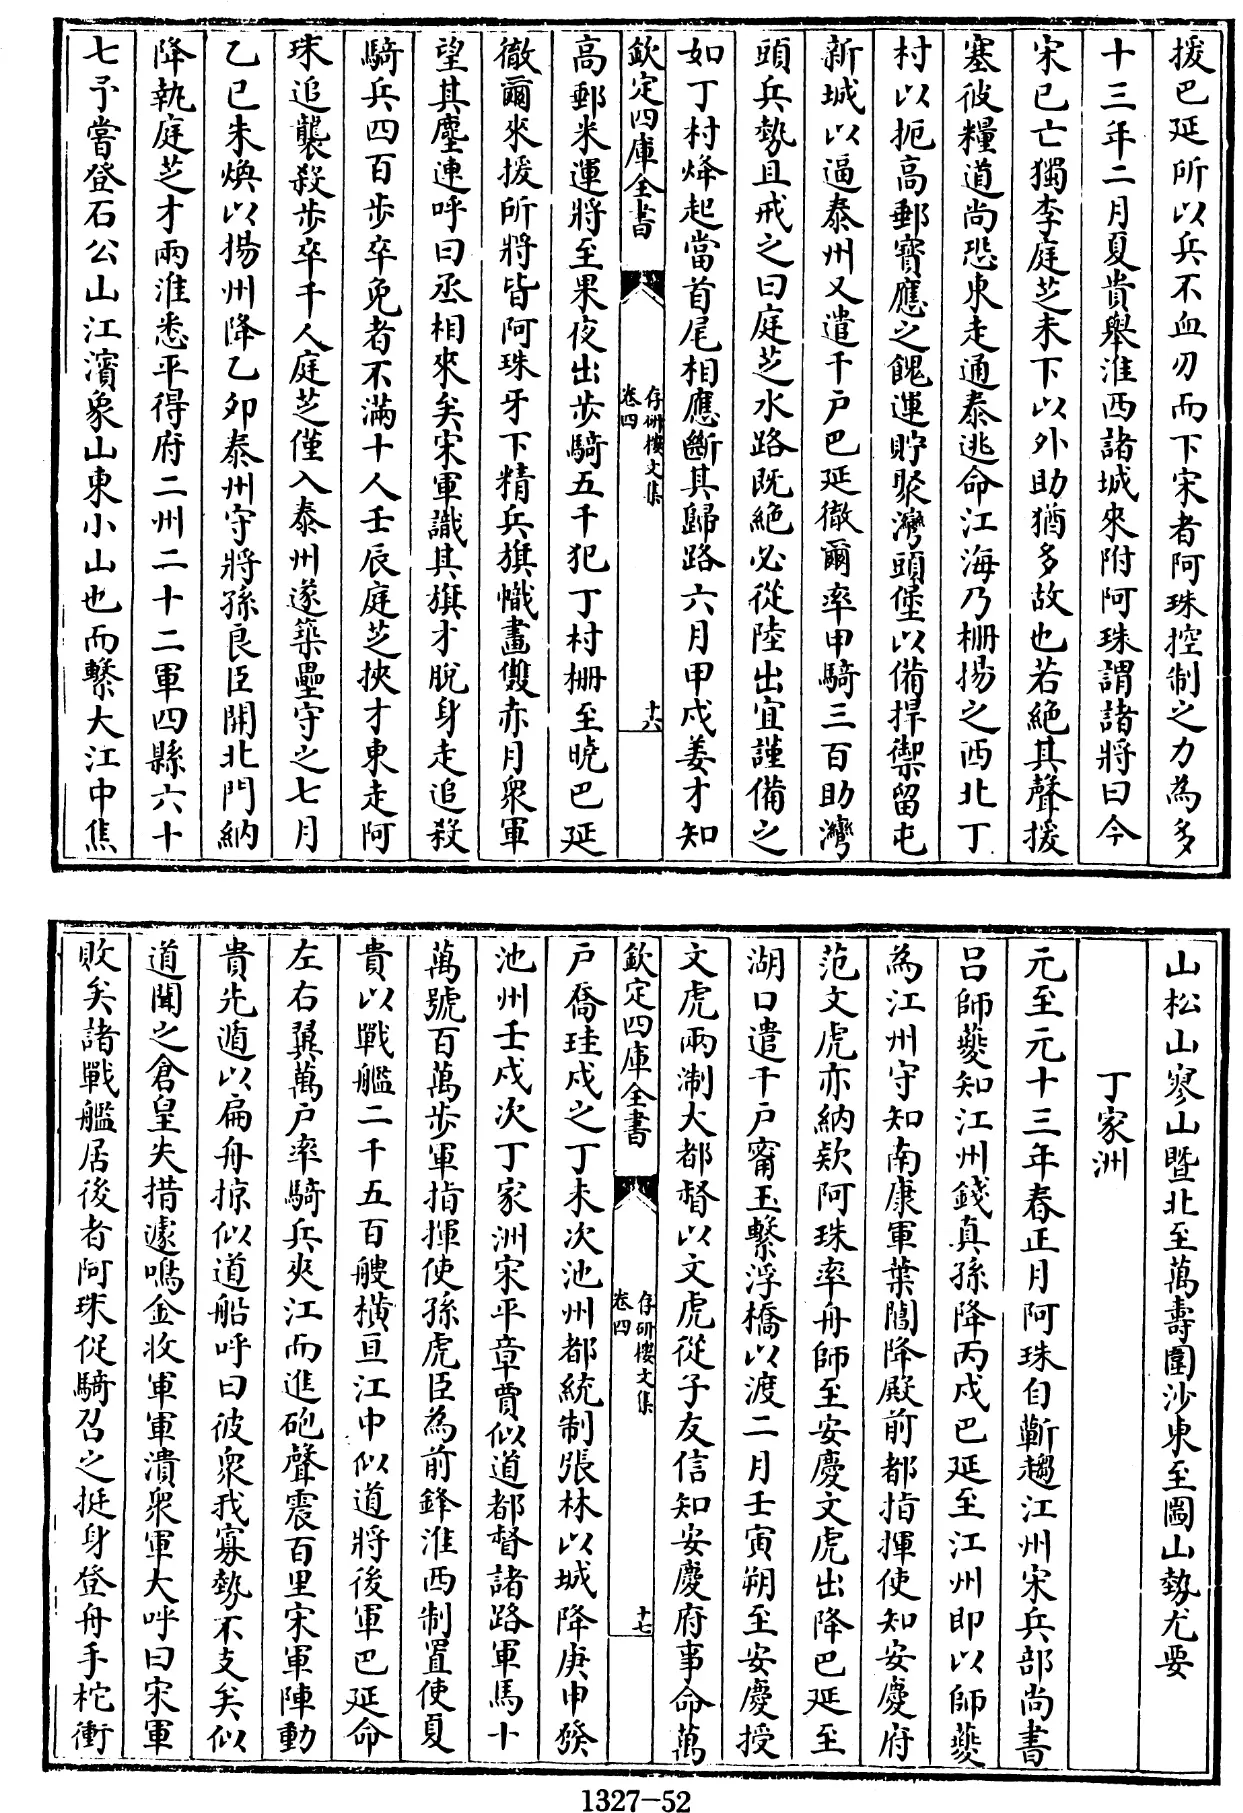 援巴延所以兵不血刃而下宋者阿珠控制之力為多
十三年二月夏貴舉淮西諸城來附阿珠謂諸將曰今
宋已亡獨李庭芝未下以外助猶多故也若絕其聲援
塞彼糧道尚恐東走通泰逃命江海乃柵揚之西北丁
村以扼高郵寶應之餽運貯聚灣頭堡以備捍禦留屯
新城以逼泰州又遣千户巴延徹爾率甲騎三百助灣
頭兵勢且戒之曰庭芝水路既絶必從陸出宜謹備之
如丁村烽起當首尾相應斷其歸路六月甲戍姜才知
欽定四庫全書
存研樓文集
卷四
十六
高郵米運將至果夜出步騎五千犯丁村柵至曉巴延
徹爾來援所將皆阿珠牙下精兵旗幟畫雙赤月衆軍
望其塵連呼曰丞相來矣宋軍識其旗才脱身走追殺
騎兵四百步卒免者不滿十人壬辰庭芝挾才東走阿
珠追襲殺步卒千人庭芝僅入泰州遂築壘守之七月
乙巳朱煥以揚州降乙卯泰州守將孫良臣開北門納
降執庭芝才兩淮悉平得府二州二十二軍四縣六十
七予嘗登石公山江濱象山東小山也而繫大江中焦
山松山寥山暨北至萬壽圍沙東至圌山勢尤要
丁家洲
元至元十三年春正月阿珠自蘄趨江州宋兵部尚書
吕師夔知江州錢真孫降丙戍巴延至江州即以師夔
為江州守知南康軍葉閶降殿前都指揮使知安慶府
范文虎亦納欵阿珠率舟師至安慶文虎出降巴延至
湖口遣千户甯玉繫浮橋以渡二月壬寅朔至安慶授
文虎兩淛大都督以文虎從子友信知安慶府事命萬
欽定四庫全書
存研樓文集
卷四
十七
户喬珪戍之丁未次池州都統制張林以城降庚申發
池州壬戍次丁家洲宋平章賈似道都督諸路軍馬十
萬號百萬步軍指揮使孫虎臣為前鋒淮西制置使夏
貴以戰艦二千五百艘橫亘江中似道將後軍巴延命
左右翼萬户率騎兵夾江而進砲聲震百里宋軍陣動
貴先遁以扁舟掠似道船呼曰彼衆我寡勢不支矣似
道聞之倉皇失措遽鳴金收軍軍潰衆軍大呼曰宋軍
敗矣諸戰艦居後者阿珠促騎召之挺身登舟手柁衝
1327-52